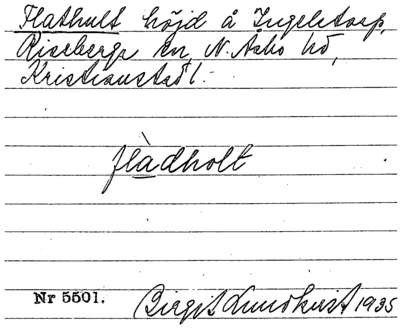 Flathult höjd å Ingelstorp,
Riseberga sn, N. Åsbo hd,
Kristianstad l.
flàdholt
Nr 5501. Birgit Lundkvist 1935